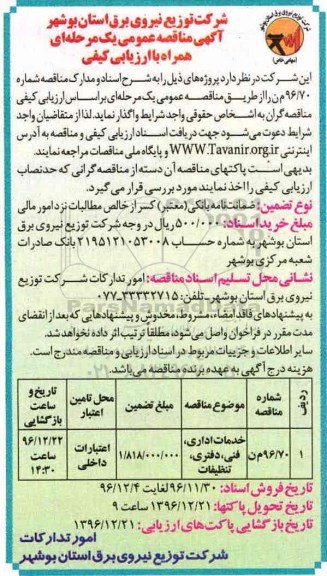 شرکت توزیع نیروی برق استان بوشهر
آگهی مناقصه عمومی یک مرحله‌ای
همراه با ارزیابی کیفی
این شرکت در نظر دارد پروژه‌های ذیل را به شرح اسناد و مدارک مناقصه شماره
۹۶/۷۰م‌ن را از طریق مناقصه عمومی یک مرحله‌ای براساس ارزیابی کیفی
مناقصه گران به اشخاص حقوقی واجد شرایط واگذار نماید. لذا از متقاضیان واجد
شرایط دعوت می‌شود جهت دریافت اسناد ارزیابی کیفی و مناقصه به آدرس
اینترنتی WWW.Tavanir.org.ir و پایگاه ملی مناقصات مراجعه نمایند.
بدیهی است پاکتهای مناقصه آن دسته از مناقصه گرانی که حد نصاب
ارزیابی کیفی را اخذ نمایند مورد بررسی قرار می گیرد.
نوع تضمین: ضمانت نامه بانکی (معتبر) کسر از خالص مطالبات نزد امور مالی
مبلغ خرید اسناد: ۵۰۰/۰۰۰ ریال در وجه شرکت توزیع نیروی برق
استان بوشهر به شماره حساب ۲۱۹۵۱۲۱۰۵۳۰۰۸ بانک صادرات
شعبه مرکزی بوشهر
نشانی محل تسلیم اسناد مناقصه: امور تدارکات شرکت توزیع
نیروی برق استان بوشهر - تلفن: ۳۳۳۳۲۷۱۵-۰۷۷
به پیشنهادهای فاقد امضاء، مشروط، مخدوش و پیشنهادهایی که بعد از انقضای
مدت مقرر در فراخوان واصل می‌شود، مطلقا ترتیب اثر داده نخواهد شد.
سایر اطلاعات و جزییات مربوط در اسناد ارزیابی و مناقصه مندرج است.
هزینه درج آگهی به عهده برنده مناقصه می‌باشد.
ردیف شماره مناقصه موضوع مناقصه مبلغ تضمین محل تامین اعتبار تاریخ و ساعت بازگشایی
۱ ۹۶/۷۰م‌ن خدمات اداری، فنی، دفتری، تنظیفات ۱/۸۱۸/۰۰۰/۰۰۰ اعتبارات داخلی ۹۶/۱۲/۲۲ ساعت ۱۴:۳۰
تاریخ فروش اسناد: ۹۶/۱۱/۳۰ لغایت ۹۶/۱۲/۴
تاریخ تحویل پاکتها: ۱۳۹۶/۱۲/۲۱ ساعت ۹
تاریخ بازگشایی پاکت های ارزیابی: ۱۳۹۶/۱۲/۲۱
امور تدارکات
شرکت توزیع نیروی برق استان بوشهر